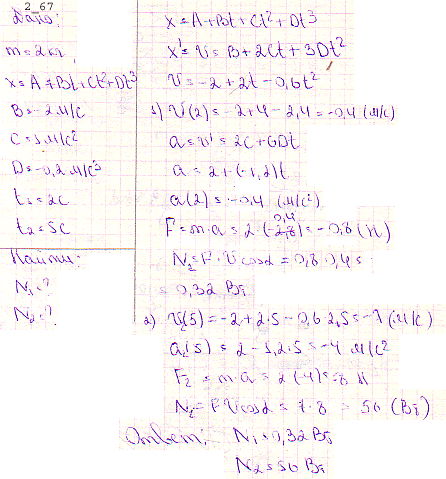 2_67
Дано:
m = 2 кг
x = A + Bt + Ct² + Dt³
B = -2 м/с
C = 1 м/с²
D = -0,2 м/с³
t₁ = 2c
t₂ = 5c
Найти:
N₁ - ?
N₂ - ?
x = A + Bt + Ct² + Dt³
x' = V = B + 2Ct + 3Dt²
V = -2 + 2t - 0,6t²
1) V(2) = -2 + 4 - 2,4 = -0,4 (м/с)
a = v' = 2C + 6Dt
a = 2 + (-1,2)t
a(2) = -0,4 (м/с²)
F = m·a = 2·(-0,4) = -0,8 (Н)
N₁ = F·V cosα = 0,8·0,4 =
= 0,32 Вт
2) V₂(5) = -2 + 2·5 - 0,6·25 = -7 (м/с)
a₂(5) = 2 - 1,2·5 = -4 м/с²
F₂ = m·a = 2(-4) = -8 Н
N₂ = F·V cosα = 7·8 = 56 (Вт)
Ответ: N₁ = 0,32 Вт
N₂ = 56 Вт